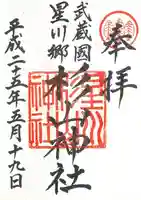 奉拝
武蔵國
星川郷
杉山神社
平成二十五年五月十九日